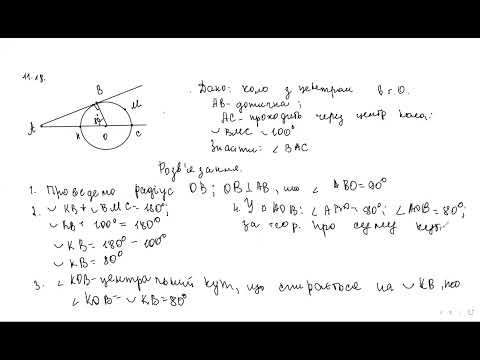 11.19.
Дано: коло з центром в т.О.
АВ - дотична;
АС - проходить через центр кола;
◡ BMC = 100°
Знайти: ∠ BAC.
B
M
A
K
O
C
Розв'язання.
1. Проведемо радіус OB; OB ⊥ AB, ∠ ABO = 90°
2. ◡ KB + ◡ BMC = 180°;
◡ KB + 100° = 180°
◡ KB = 180° - 100°
◡ KB = 80°
4. У △ AOB: ∠ ABO = 90°; ∠ AOB = 80°;
за теор. про суму кутів
3. ∠ KOB - центральний кут, що спирається на ◡ KB,
∠ KOB = ◡ KB = 80°